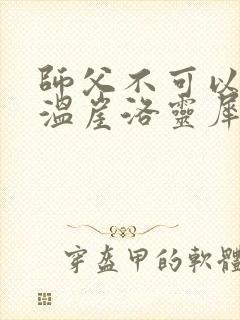 師父不可以
溫崖洛靈犀
穿盔甲的軟體